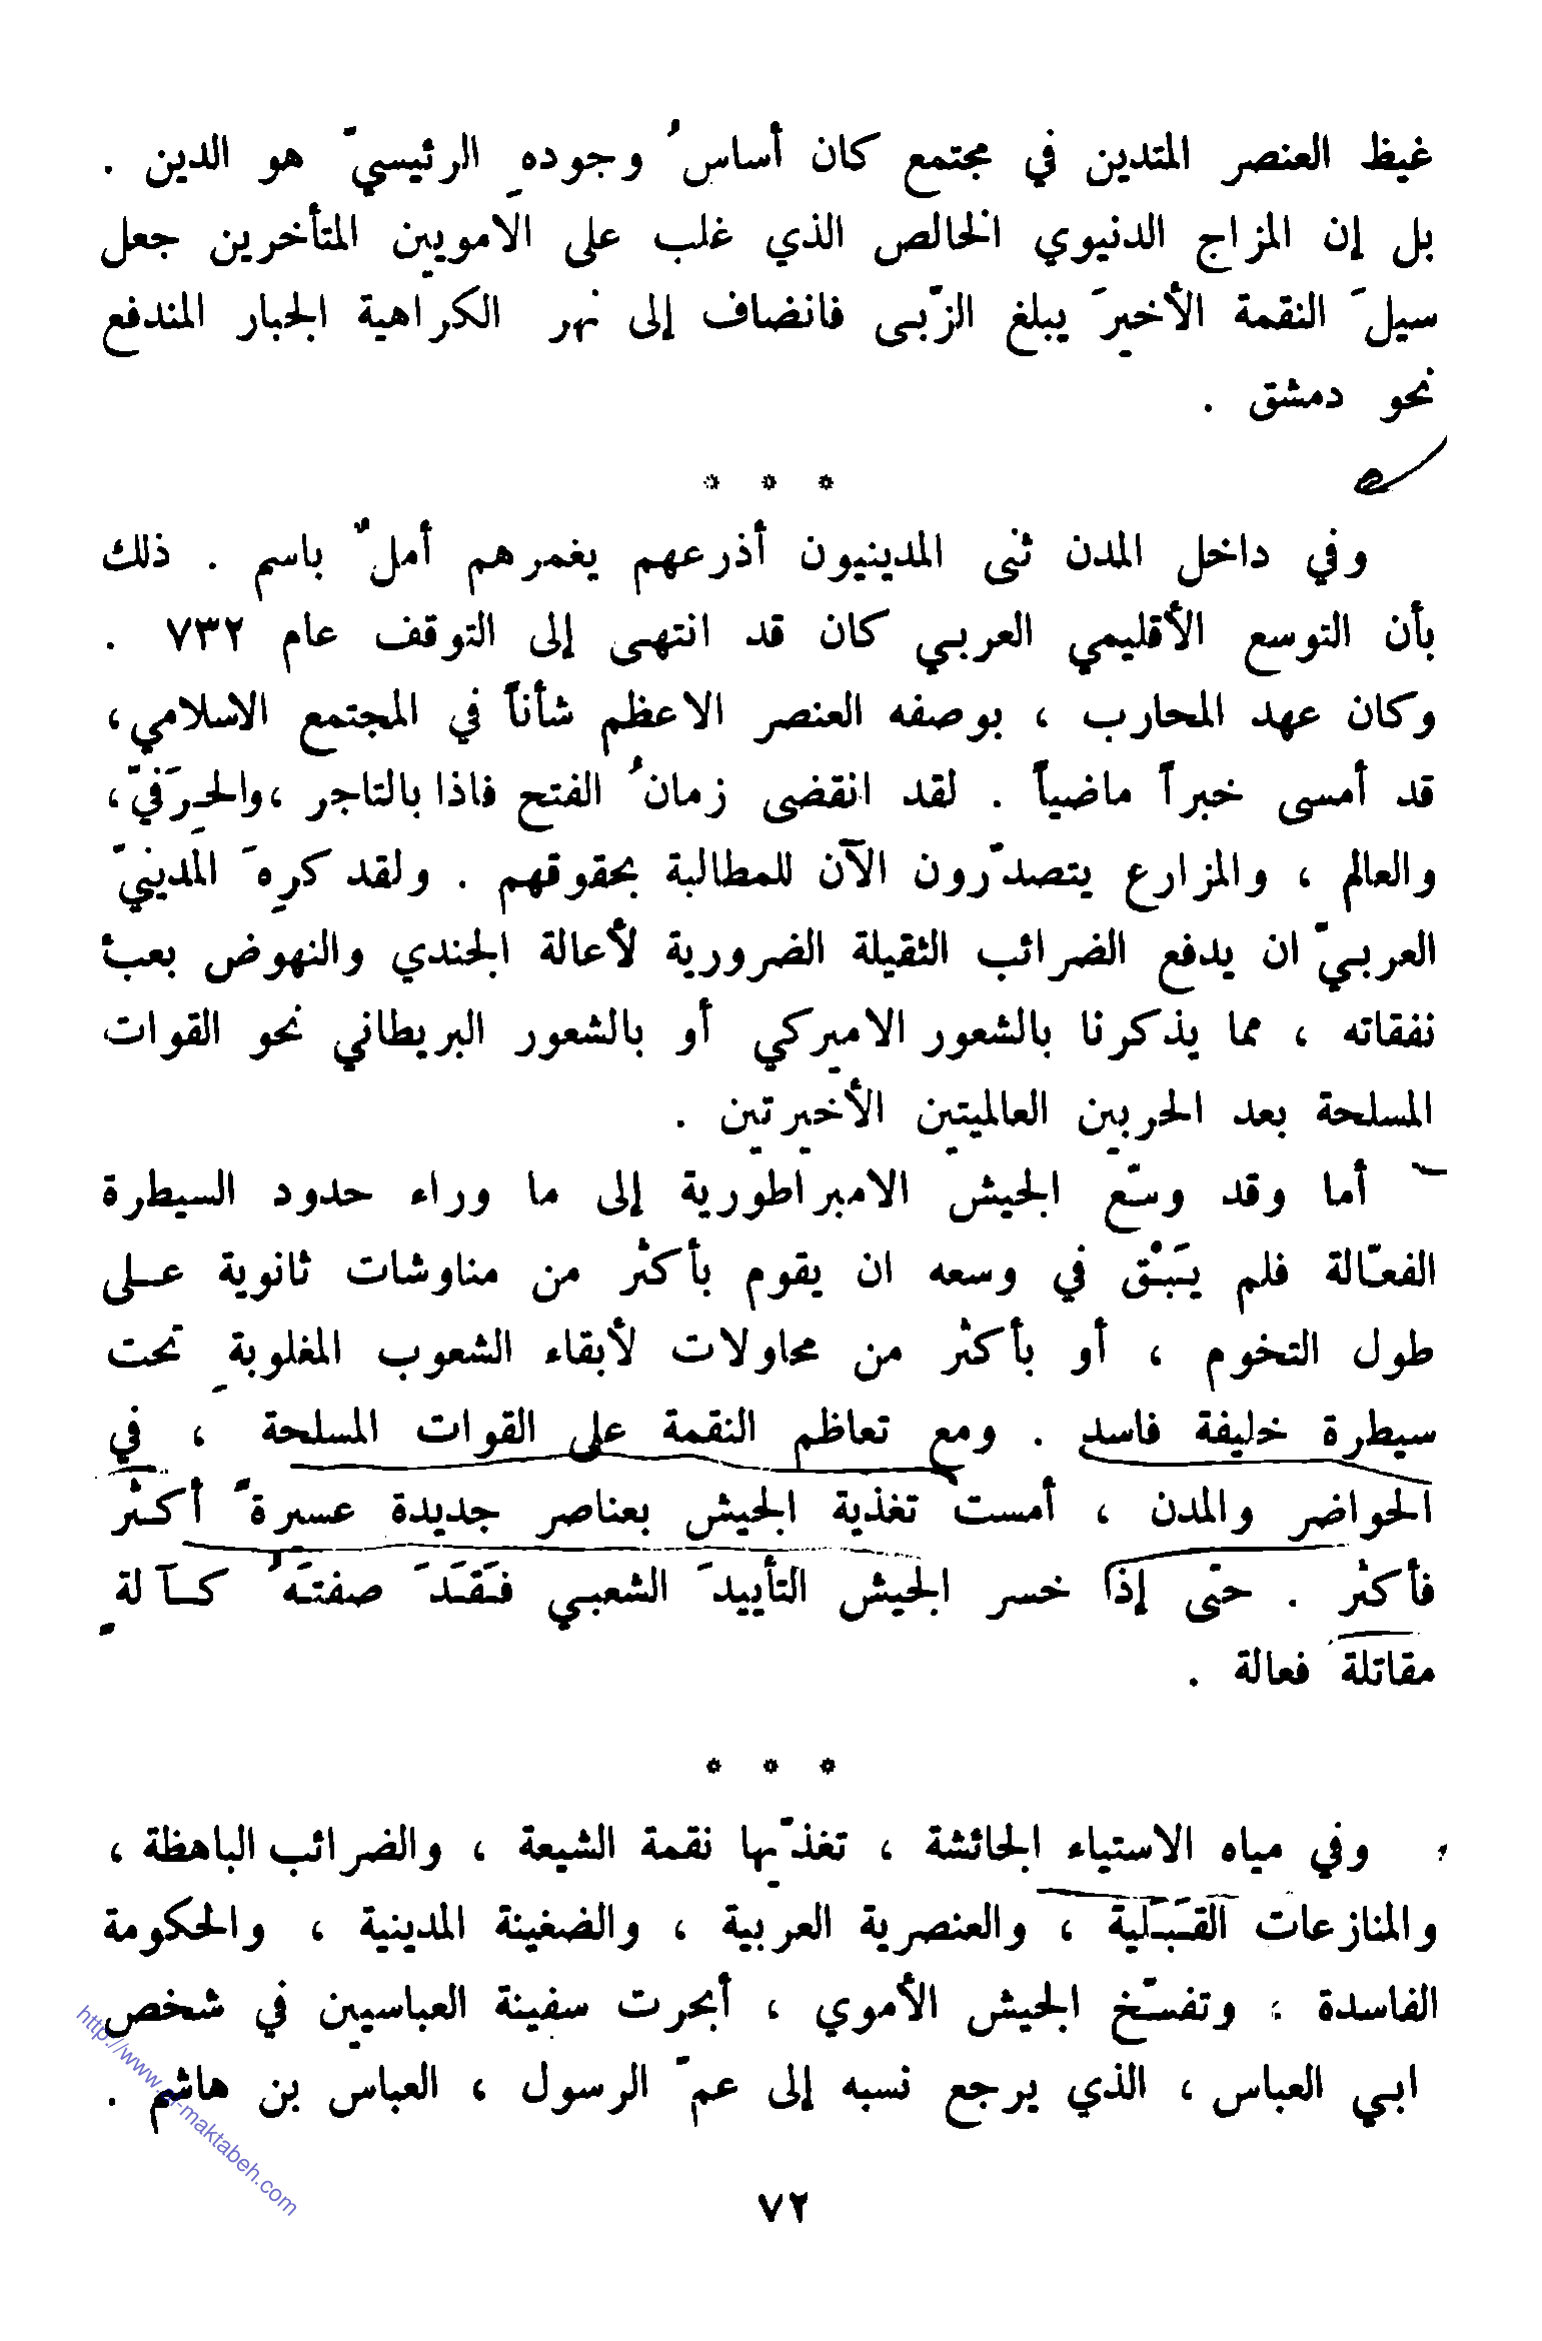 غيظ العنصر المتدين في مجتمع كان أساسُ وجودهِ الرئيسيّ هو الدين .
بل إن المزاج الدنيوي الخالص الذي غلب على الامويين المتأخرين جعل
سيلَ النقمة الأخيرَ يبلغ الزّبى فانضاف إلى نهر الكراهية الجبار المندفع
نحو دمشق .
* * *
وفي داخل المدن ثنى المدينيون أذرعهم يغمرهم أملٌ باسم . ذلك
بأن التوسع الأقليمي العربي كان قد انتهى إلى التوقف عام ٧٣٢ .
وكان عهد المحارب ، بوصفه العنصر الاعظم شأناً في المجتمع الاسلامي ،
قد أمسى خبراً ماضياً . لقد انقضى زمانُ الفتح فاذا بالتاجر ، والحِرَفيّ ،
والعالم ، والمزارع يتصدّرون الآن للمطالبة بحقوقهم . ولقد كرِهَ المدينيّ
العربيّ ان يدفع الضرائب الثقيلة الضرورية لأعالة الجندي والنهوض بعبْ
نفقاته ، مما يذكرنا بالشعور الاميركي أو بالشعور البريطاني نحو القوات
المسلحة بعد الحربين العالميتين الأخيرتين .
أما وقد وسّع الجيش الامبراطورية إلى ما وراء حدود السيطرة
الفعّالة فلم يَبْق في وسعه ان يقوم بأكثر من مناوشات ثانوية عـلى
طول التخوم ، أو بأكثر من محاولات لأبقاء الشعوب المغلوبةِ تحت
سيطرة خليفة فاسد . ومع تعاظم النقمة على القوات المسلحة ، في
الحواضر والمدن ، أمست تغذية الجيش بعناصر جديدة عسيرةً أكـثر
فأكثر . حتى إذا خسر الجيش التأييدَ الشعبي فَقَدَ صفتَهُ كـآلةٍ
مقاتلة فعالة .
* * *
وفي مياه الاستياء الجائشة ، تغذّيها نقمة الشيعة ، والضرائب الباهظة ،
والمنازعات القَبَلية ، والعنصرية العربية ، والضغينة المدينية ، والحكومة
الفاسدة ، وتفسّخ الجيش الأموي ، أبحرت سفينة العباسيين في شخص
ابي العباس ، الذي يرجع نسبه إلى عمّ الرسول ، العباس بن هاشم .
٧٢